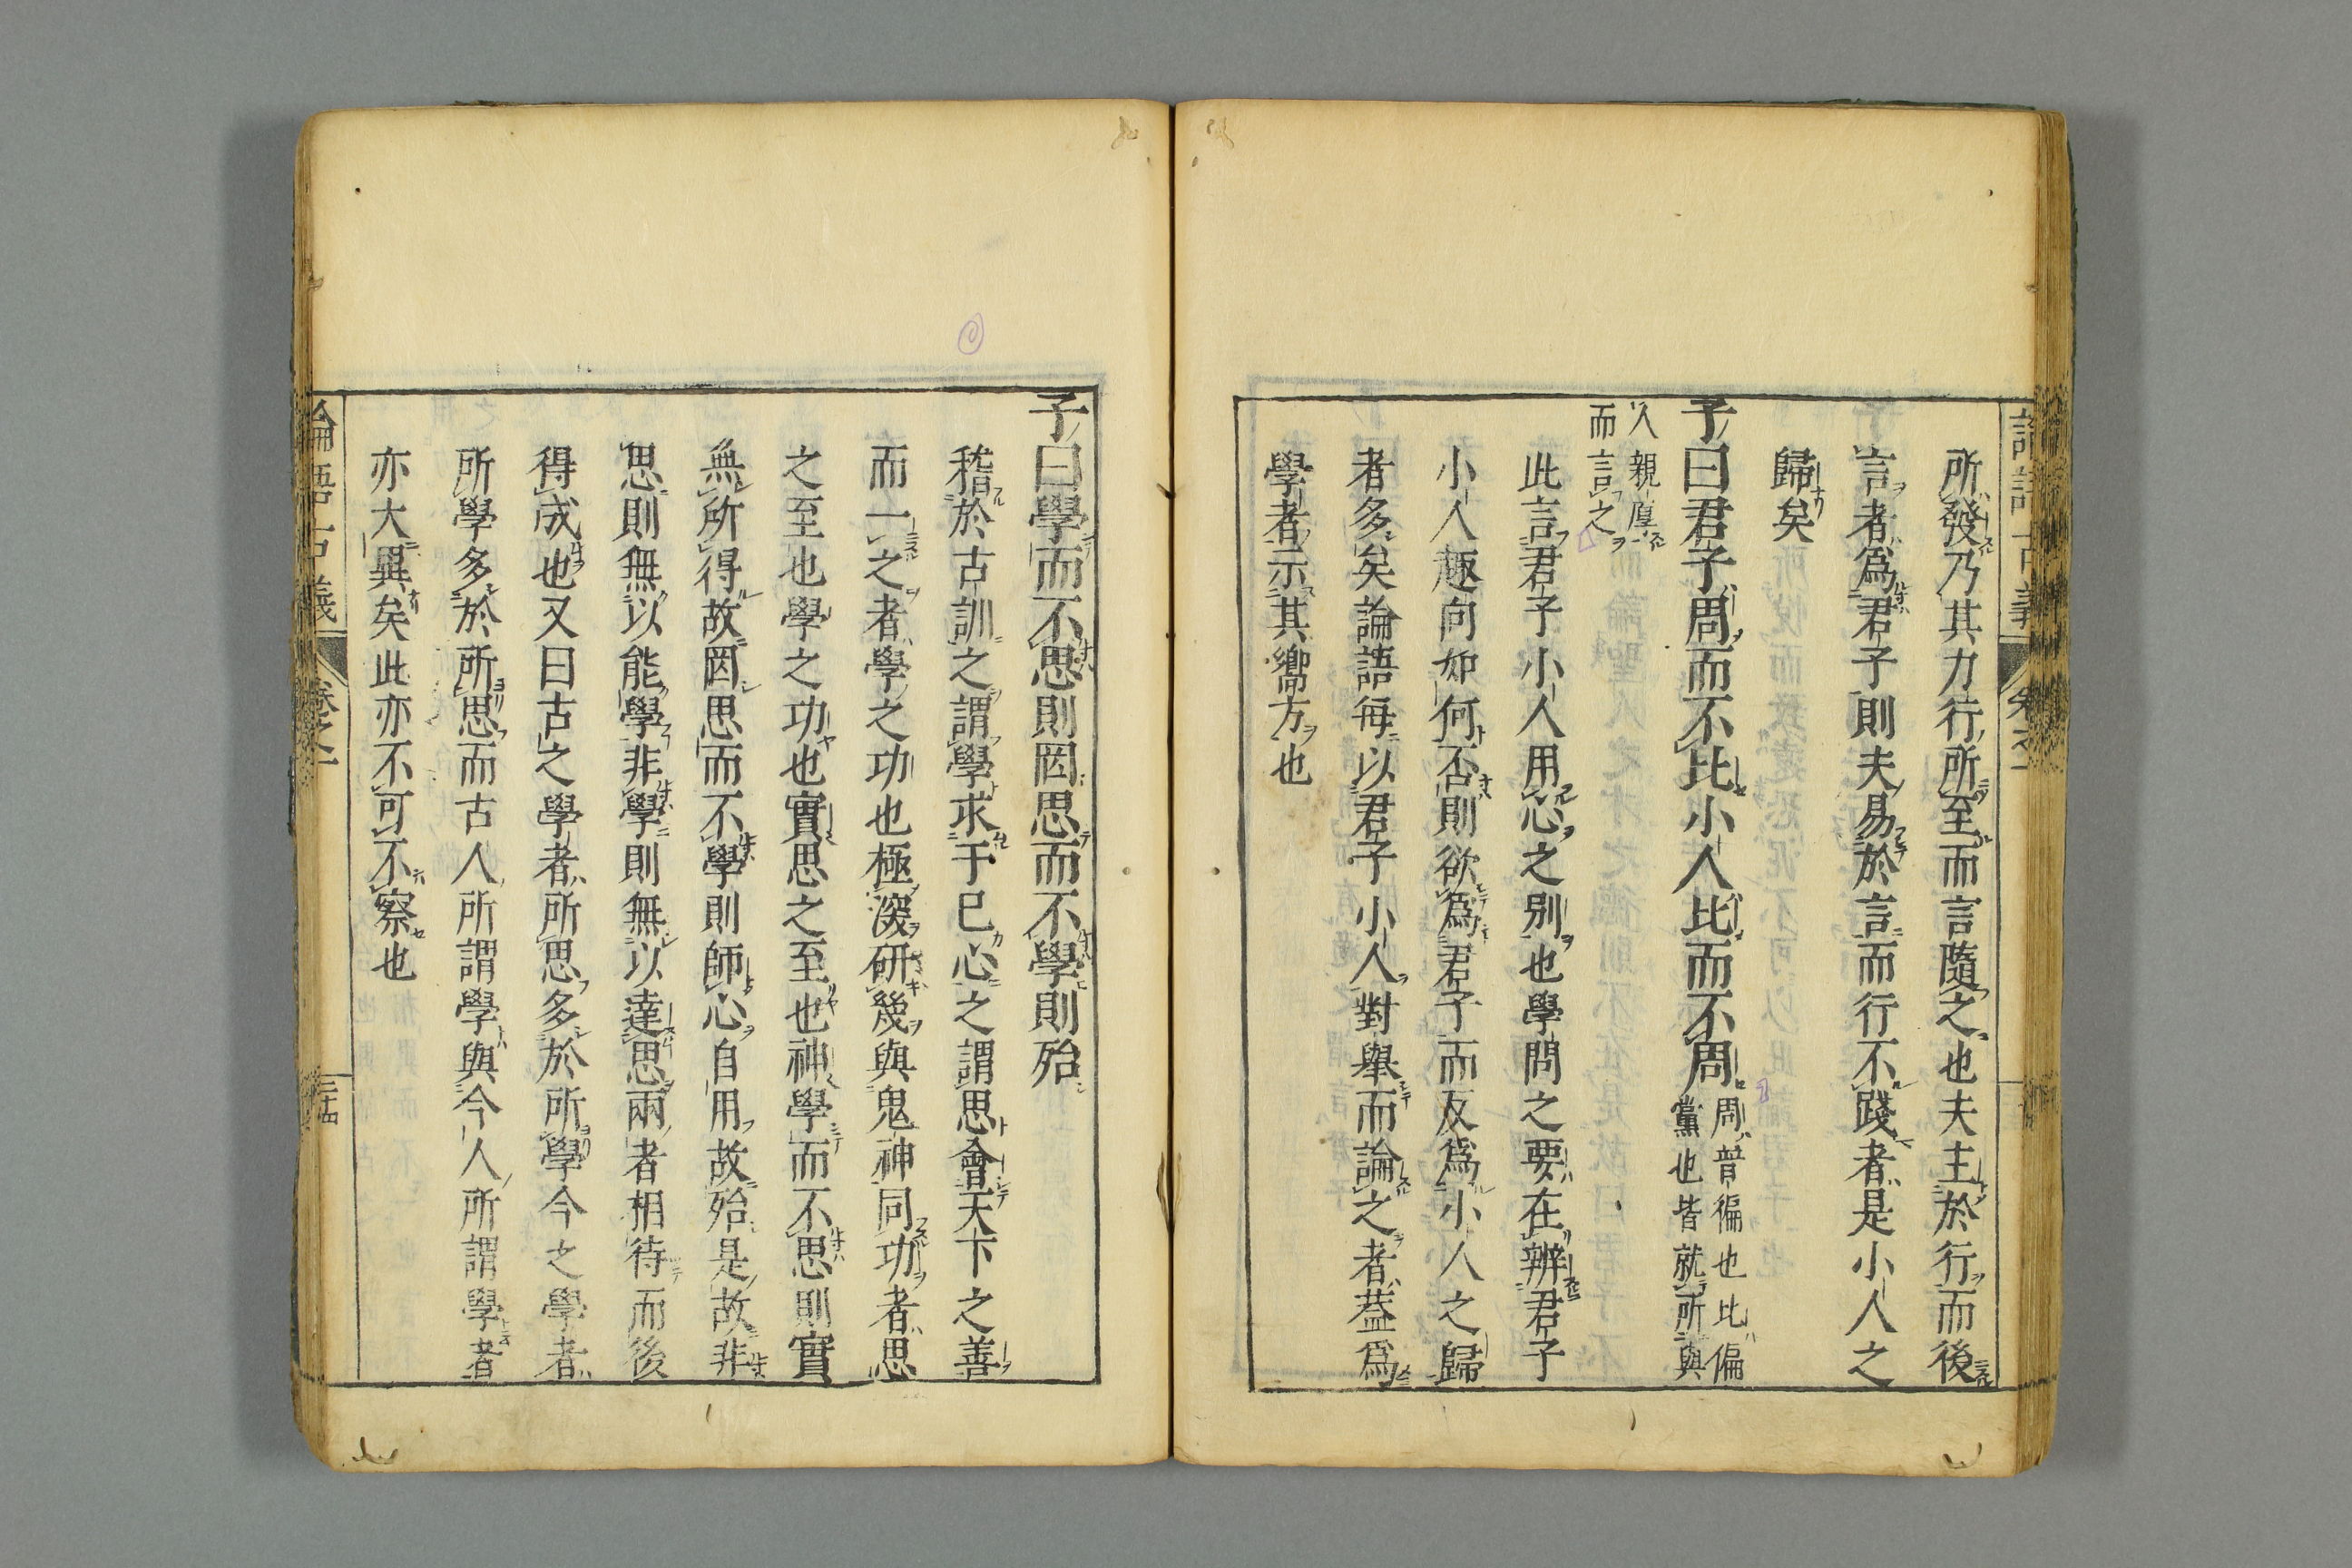 所發乃其力行所至而言隨之也夫主於行而後
言者爲君子則夫易於言而行不踐者是小人之
歸矣
子曰君子周而不比小人比而不周周普徧也比偏
黨也皆就所與
人親厚
而言之
此言君子小人用心之別也學問之要在辨君子
小人趣向如何否則欲爲君子而反爲小人之歸
者多矣論語每以君子小人對舉而論之者蓋爲
學者示其嚮方也
子曰學而不思則罔思而不學則殆
稽於古訓之謂學求于己心之謂思會天下之善
而一之者學之功也極深研幾與鬼神同功者思
之至也學之功也實思之至也神學而不思則實
無所得故罔思而不學則師心自用故殆是故非
思則無以能學非學則無以達思兩者相待而後
得成也又曰古之學者所思多於所學今之學者
所學多於所思而古人所謂學與今人所謂學者
亦大異矣此亦不可不察也
論語古義 卷之一 三十四